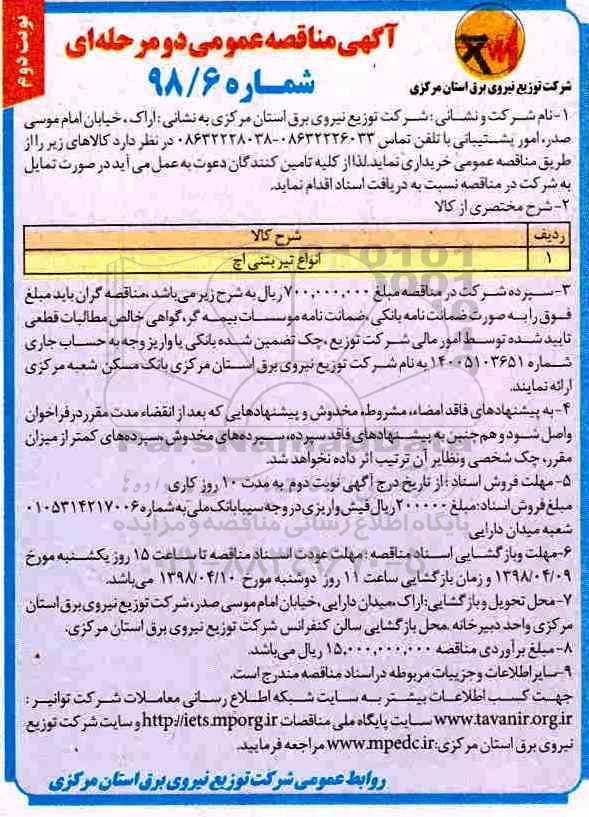 نوبت دوم
آگهی مناقصه عمومی دو مرحله‌ای
شماره ۹۸/۶
شرکت توزیع نیروی برق استان مرکزی
۱-نام شرکت و نشانی : شرکت توزیع نیروی برق استان مرکزی به نشانی : اراک ، خیابان امام موسی
صدر، امور پشتیبانی با تلفن تماس ۰۸۶۳۲۲۲۶۰۳۳-۰۸۶۳۲۲۲۸۰۳۸ در نظر دارد کالاهای زیر را از
طریق مناقصه عمومی خریداری نماید.لذا از کلیه تامین کنندگان دعوت به عمل می آید در صورت تمایل
به شرکت در مناقصه نسبت به دریافت اسناد اقدام نماید.
۲-شرح مختصری از کالا
ردیف شرح کالا
۱ انواع تیر بتنی اچ
۳-سپرده شرکت در مناقصه مبلغ ۷۰۰,۰۰۰,۰۰۰ ریال به شرح زیر می‌باشد ،مناقصه گران باید مبلغ
فوق را به صورت ضمانت نامه بانکی ،ضمانت نامه موسسات بیمه گر، گواهی خالص مطالبات قطعی
تایید شده توسط امور مالی شرکت توزیع ،چک تضمین شده بانکی یا واریز وجه به حساب جاری
شماره ۱۴۰۰۵۱۰۳۶۵۱ به نام شرکت توزیع نیروی برق استان مرکزی بانک مسکن شعبه مرکزی
ارائه نمایند.
۴-به پیشنهادهای فاقد امضاء، مشروط، مخدوش و پیشنهادهایی که بعد از انقضاء مدت مقرر در فراخوان
واصل شود و هم‌چنین به پیشنهادهای فاقد سپرده، سپرده‌های مخدوش ،سپرده‌های کمتر از میزان
مقرر، چک شخصی ونظایر آن ترتیب اثر داده نخواهد شد.
۵-مهلت فروش اسناد : از تاریخ درج آگهی نوبت دوم به مدت ۱۰ روز کاری
مبلغ فروش اسناد: مبلغ ۲۰۰۰۰۰ ریال فیش واریزی در وجه سیبا بانک ملی به شماره ۰۱۰۵۳۱۴۲۱۷۰۰۶
شعبه میدان دارایی
۶-مهلت وبازگشایی اسناد مناقصه : مهلت عودت اسناد مناقصه تا ساعت ۱۵ روز یکشنبه مورخ
۱۳۹۸/۰۴/۰۹ و زمان بازگشایی ساعت ۱۱ روز دوشنبه مورخ ۱۳۹۸/۰۴/۱۰ می‌باشد.
۷-محل تحویل وبازگشایی: اراک ،میدان دارایی ،خیابان امام موسی صدر، شرکت توزیع نیروی برق استان
مرکزی واحد دبیرخانه .محل بازگشایی سالن کنفرانس شرکت توزیع نیروی برق استان مرکزی.
۸-مبلغ برآوردی مناقصه ۱۵,۰۰۰,۰۰۰,۰۰۰ ریال می‌باشد.
۹-سایر اطلاعات وجزییات مربوطه در اسناد مناقصه مندرج است.
جهت کسب اطلاعات بیشتر به سایت شبکه اطلاع رسانی معاملات شرکت توانیر :
www.tavanir.org.ir سایت پایگاه ملی مناقصات http://iets.mporg.ir و سایت شرکت توزیع
نیروی برق استان مرکزی: www.mpedc.ir مراجعه فرمایید.
روابط عمومی شرکت توزیع نیروی برق استان مرکزی